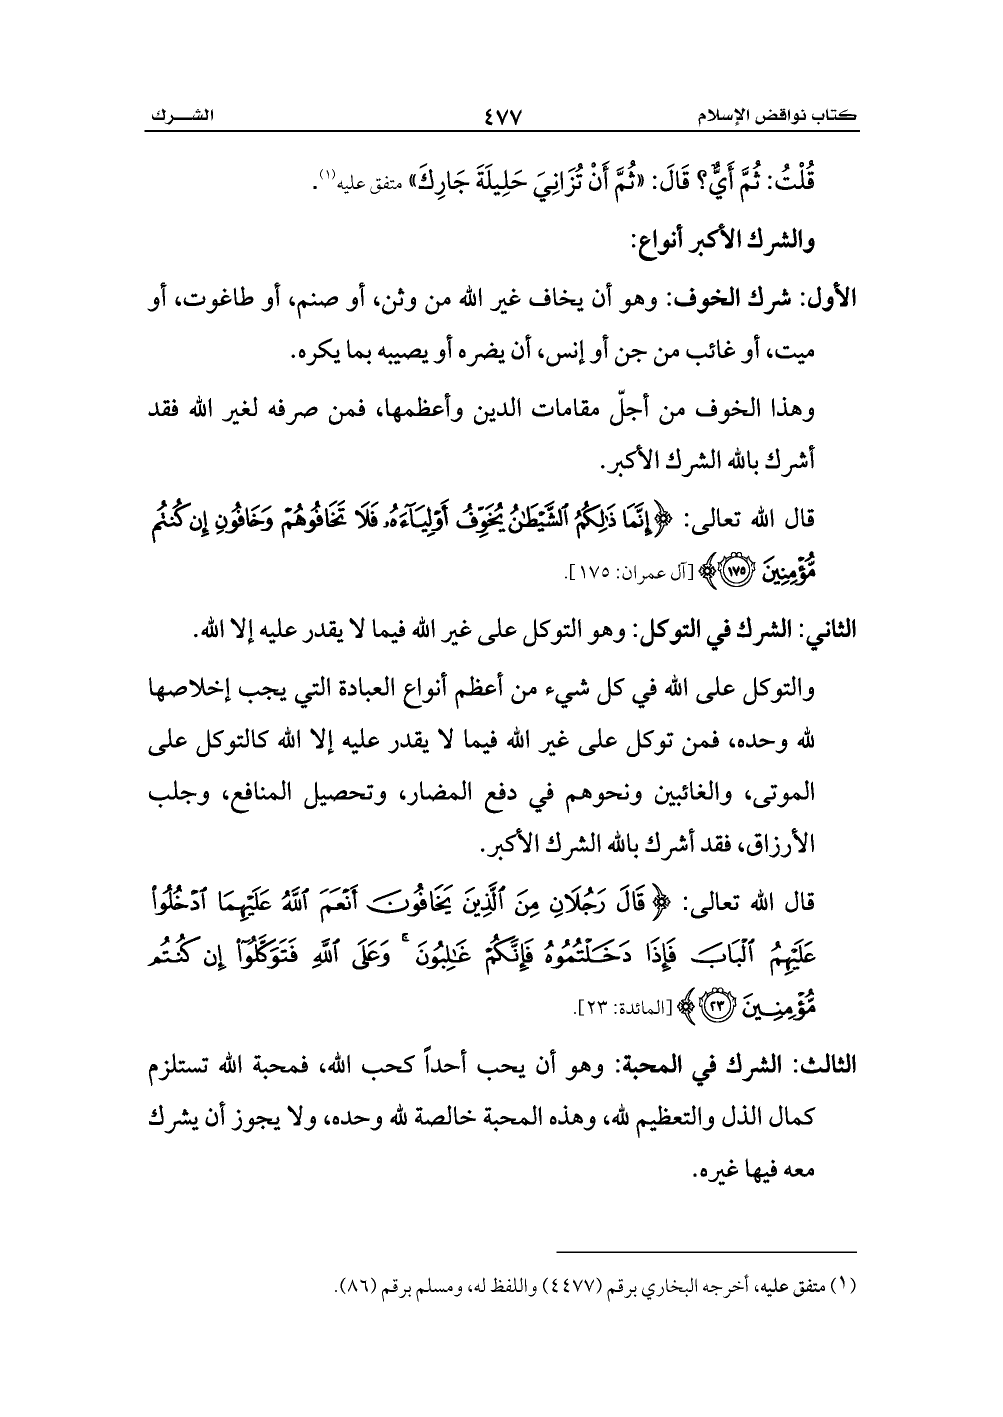 كتاب نواقض الإسلام ٤٧٧ الشـــرك
قُلْتُ: ثُمَّ أَيٌّ؟ قَالَ: «ثُمَّ أَنْ تُزَانِيَ حَلِيلَةَ جَارِكَ» متفق عليه(١).
والشرك الأكبر أنواع:
الأول: شرك الخوف: وهو أن يخاف غير الله من وثن، أو صنم، أو طاغوت، أو
ميت، أو غائب من جن أو إنس، أن يضره أو يصيبه بما يكره.
وهذا الخوف من أجلّ مقامات الدين وأعظمها، فمن صرفه لغير الله فقد
أشرك بالله الشرك الأكبر.
قال الله تعالى: ﴿إِنَّمَا ذَٰلِكُمُ ٱلشَّيْطَٰنُ يُخَوِّفُ أَوْلِيَآءَهُۥ فَلَا تَخَافُوهُمْ وَخَافُونِ إِن كُنتُم
مُّؤْمِنِينَ ١٧٥﴾ [آل عمران: ١٧٥].
الثاني: الشرك في التوكل: وهو التوكل على غير الله فيما لا يقدر عليه إلا الله.
والتوكل على الله في كل شيء من أعظم أنواع العبادة التي يجب إخلاصها
لله وحده، فمن توكل على غير الله فيما لا يقدر عليه إلا الله كالتوكل على
الموتى، والغائبين ونحوهم في دفع المضار، وتحصيل المنافع، وجلب
الأرزاق، فقد أشرك بالله الشرك الأكبر.
قال الله تعالى: ﴿قَالَ رَجُلَانِ مِنَ ٱلَّذِينَ يَخَافُونَ أَنْعَمَ ٱللَّهُ عَلَيْهِمَا ٱدْخُلُوا۟
عَلَيْهِمُ ٱلْبَابَ فَإِذَا دَخَلْتُمُوهُ فَإِنَّكُمْ غَٰلِبُونَ ۚ وَعَلَى ٱللَّهِ فَتَوَكَّلُوٓا۟ إِن كُنتُم
مُّؤْمِنِينَ ٢٣﴾ [المائدة: ٢٣].
الثالث: الشرك في المحبة: وهو أن يحب أحداً كحب الله، فمحبة الله تستلزم
كمال الذل والتعظيم لله، وهذه المحبة خالصة لله وحده، ولا يجوز أن يشرك
معه فيها غيره.
(١) متفق عليه، أخرجه البخاري برقم (٤٤٧٧) واللفظ له، ومسلم برقم (٨٦).